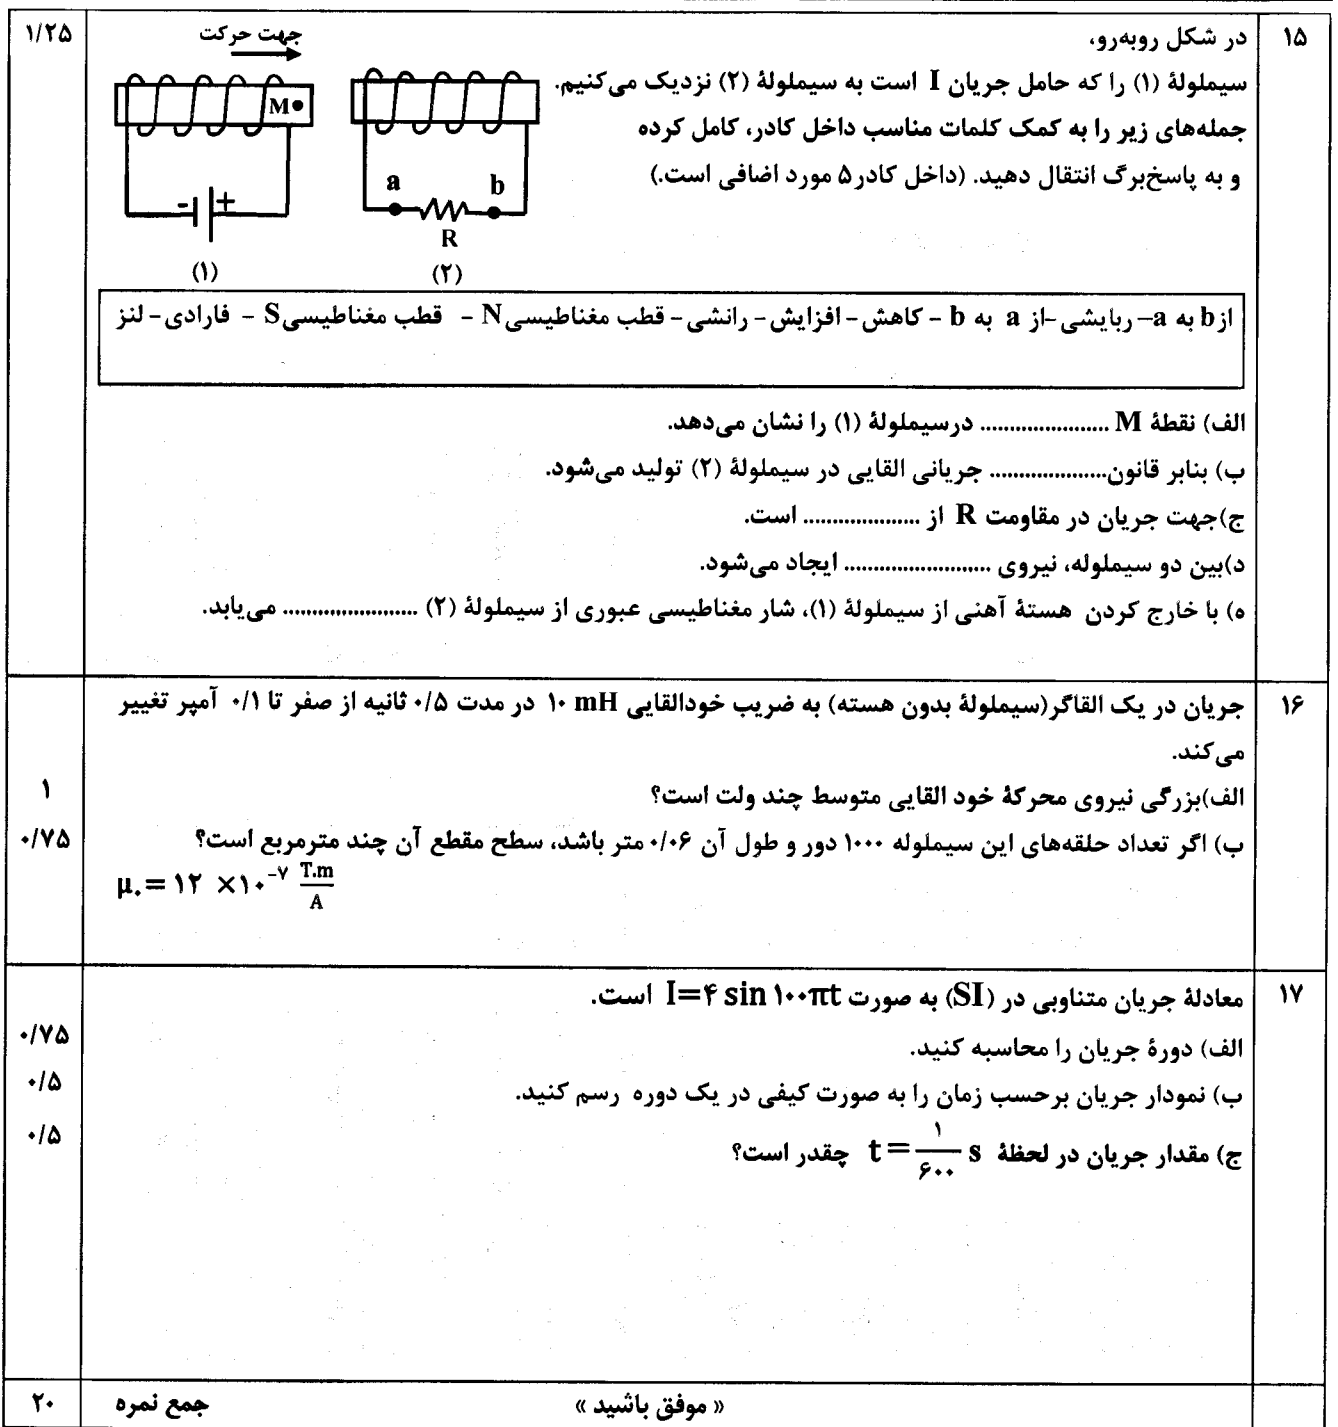 ۱۵
در شکل روبه‌رو،
سیملولۀ (۱) را که حامل جریان I است به سیملولۀ (۲) نزدیک می‌کنیم.
جمله‌های زیر را به کمک کلمات مناسب داخل کادر، کامل کرده
و به پاسخ‌برگ انتقال دهید. (داخل کادر۵ مورد اضافی است.)
۱/۲۵
جهت حرکت
M
- +
(۱)
a b
R
(۲)
از b به a– ربایشی -از a به b - کاهش- افزایش- رانشی- قطب مغناطیسی N - قطب مغناطیسی S - فارادی- لنز
الف) نقطۀ M ...................... درسیملولۀ (۱) را نشان می‌دهد.
ب) بنابر قانون.................... جریانی القایی در سیملولۀ (۲) تولید می‌شود.
ج)جهت جریان در مقاومت R از .................... است.
د)بین دو سیملوله، نیروی ......................... ایجاد می‌شود.
ه) با خارج کردن هستۀ آهنی از سیملولۀ (۱)، شار مغناطیسی عبوری از سیملولۀ (۲) ....................... می‌یابد.
۱۶
جریان در یک القاگر(سیملولۀ بدون هسته) به ضریب خودالقایی ۱۰ mH در مدت ۰/۵ ثانیه از صفر تا ۰/۱ آمپر تغییر
می‌کند.
الف)بزرگی نیروی محرکۀ خود القایی متوسط چند ولت است؟
۱
ب) اگر تعداد حلقه‌های این سیملوله ۱۰۰۰ دور و طول آن ۰/۰۶ متر باشد، سطح مقطع آن چند مترمربع است؟
۰/۷۵
μ۰= ۱۲ ×۱۰⁻⁷ T.m/A
۱۷
معادلۀ جریان متناوبی در (SI) به صورت I=۴ sin ۱۰۰πt است.
الف) دورۀ جریان را محاسبه کنید.
۰/۷۵
ب) نمودار جریان برحسب زمان را به صورت کیفی در یک دوره رسم کنید.
۰/۵
ج) مقدار جریان در لحظۀ t=۱/۶۰۰ s چقدر است؟
۰/۵
« موفق باشید »
جمع نمره
۲۰